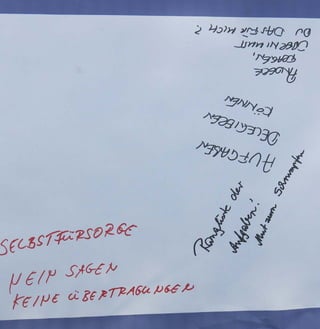 AUFGABEN
DELEGIEREN
KÖNNEN
ANDERE
FRAGEN,
DU DAS FÜR MICH?
Rangliste der
Aufgaben!
Mut zum Schrumpfen
SELBSTFÜRSORGE
NEIN SAGEN
KEINE ÜBERTRAGUNGEN